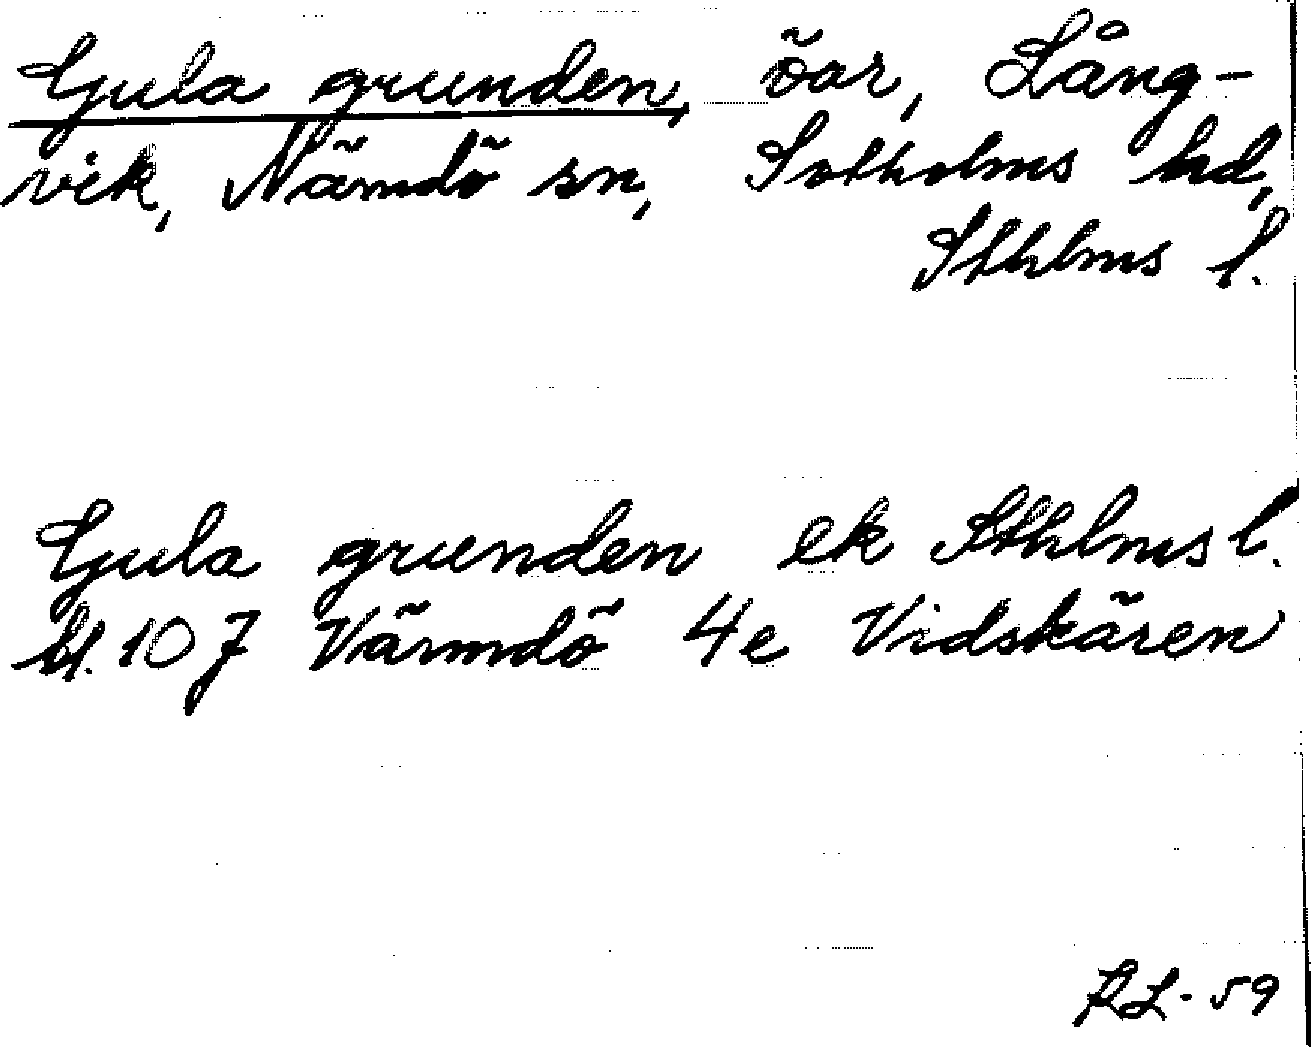 Gula grunden, öar, Lång-
vik, Nämdö sn, Sotholms hd,
Sthlms l.
Gula grunden ek Sthlms l.
bl. 107 Värmdö 4e Vidskären
RL-59